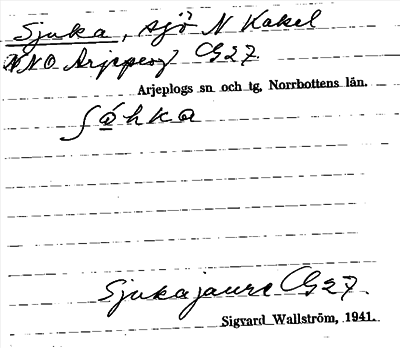 Sjuka, sjö N Kakel
NNO Arjeplog G27.
Arjeplogs sn och tg, Norrbottens län.
ʃɑ̀hka
Sjukajaure G27.
Sigvard Wallström, 1941.